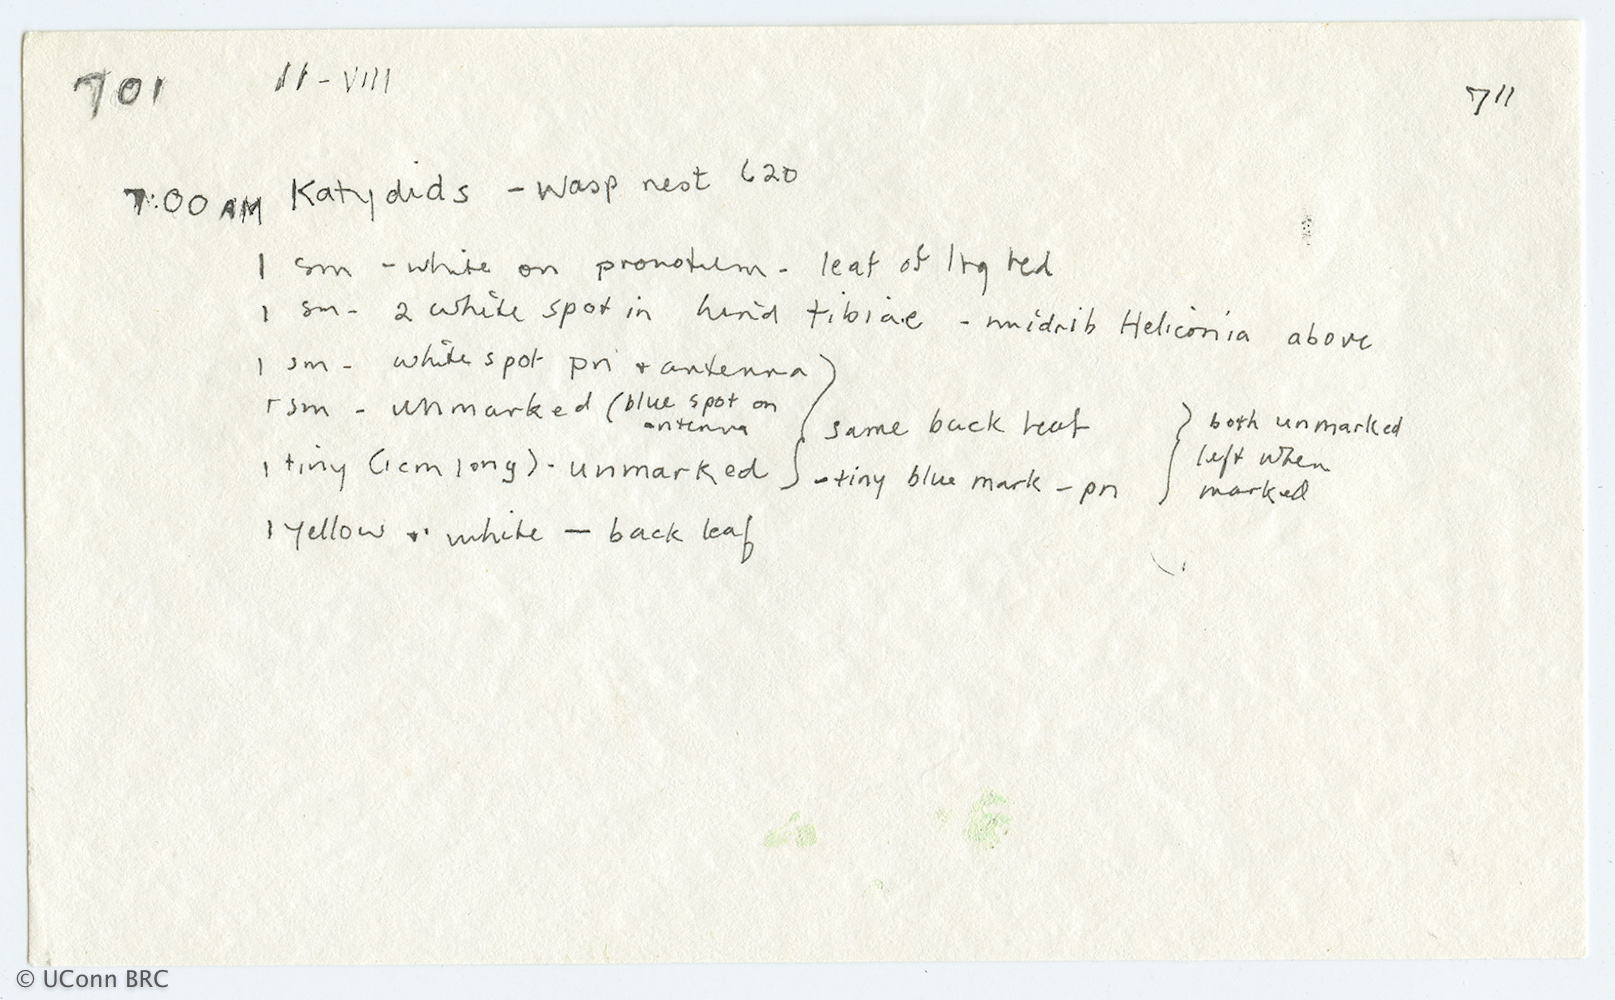 701 11-VIII 711
7:00 AM Katydids - wasp nest 620
1 sm - white on pronotum - leaf of lrg red
1 sm - 2 white spot in hind tibiae - midrib Heliconia above
1 sm - white spot pn + antenna
1 sm - unmarked (blue spot on
antenna
same back leaf
both unmarked
left when
marked
1 tiny (1cm long) - unmarked - tiny blue mark - pn
1 yellow + white — back leaf
© UConn BRC